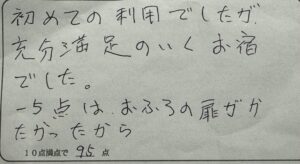 初めての利用でしたが
充分満足のいくお宿
でした。
-5点は、おふろの扉がか
たかったから
10点満点で 95 点